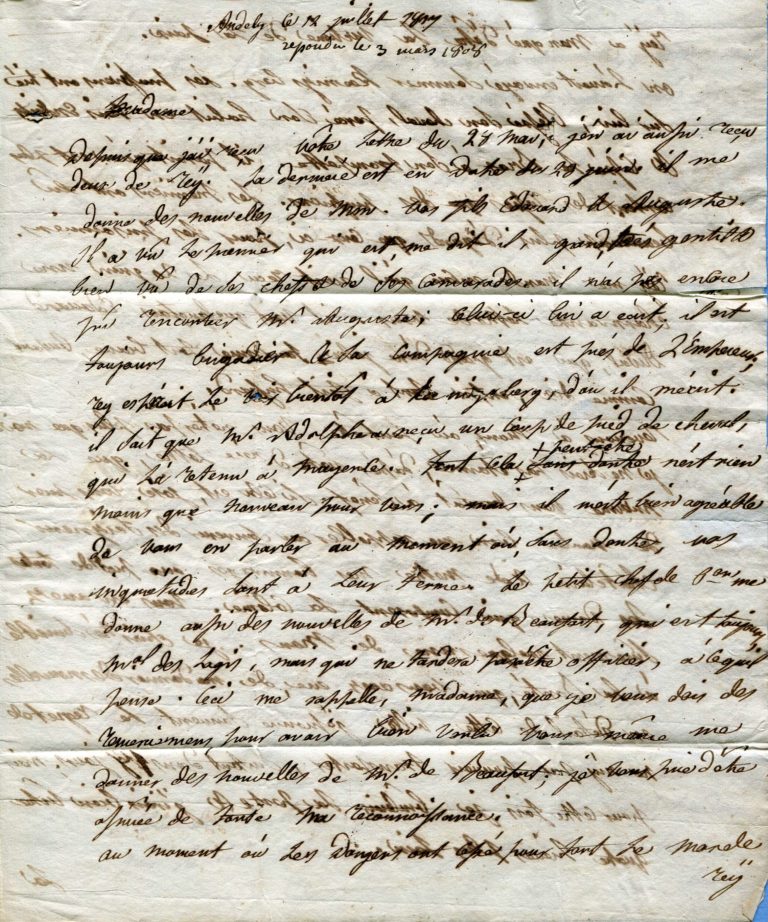 Andely le 12 juillet 1807
repondu le 3 mars 1808
Madame
Depuis que j'ai reçu vôtre lettre du 28 mai, j'en ai aussi reçu
deux de Rey. La dernière est en date du 29 juin. il me
donne des nouvelles de Mrs. vos fils Edouard & Auguste.
Il a vu le premier qui est, me dit il, grand, très gentil &
bien vu de ses chefs & de ses camarades. il n'a pas encore
pu rencontrer Mr. Auguste; Celui-ci lui a écrit, il est
toujours brigadier & sa compagnie est près de L'Empereur,
rey espéroit le voir bientôt à Koenigsberg, d'où il m'écrit.
il sait que Mr. Adolphe a reçu un coup de pied de cheval,
qui l'a retenu à mayence. tout cela sans doute peut-être n'est rien
moins que nouveau pour vous; mais il m'est bien agréable
de vous en parler au moment où, sans doute, vos
inquiétudes sont à leur terme. Le petit chef de me
donne aussi des nouvelles de Mr. de Beaufort, qui est toujours
Mal. des logis, mais qui ne tardera pas à être officier, à ce qu'il
pense. Ceci me rappelle, Madame, que je vous dois des
remerciemens pour avoir bien voulu vous même me
donner des nouvelles de Mr. de Beaufort, je vous prie d'être
assurée de toute ma reconnoissance.
au moment où les dangers ont cessé pour tout le monde
rey